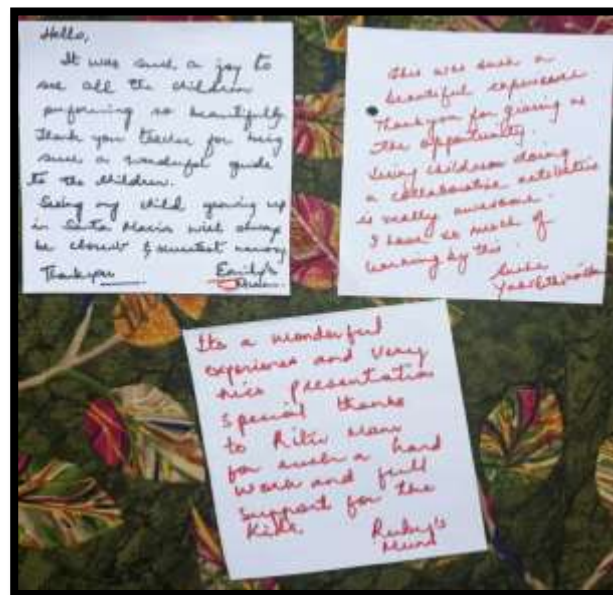 Hello,
It was such a joy to
see all the children
performing so beautifully
Thank you teacher for being
such a wonderful guide
to the children.
Seeing my child growing up
in Santa Maria will always
be closest & sweetest memory
Thank you
Emily's
Mum
This was such a
beautiful experience
Thank you for giving us
the opportunity.
Seeing children doing
a collaborative activities
is really awesome.
I have so much of
learning by this.
Its a wonderful
experience and very
nice presentation
Special thanks
to Ritu Mam
for such a hard
work and full
support for the
kids.
Ruby's
Mum